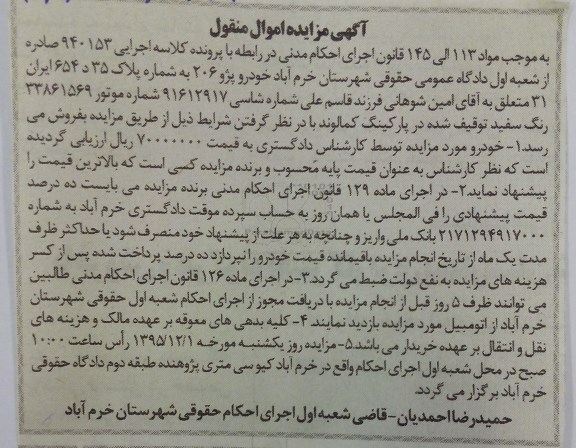 آگهی مزایده اموال منقول
به موجب مواد ۱۱۳ الی ۱۴۵ قانون اجرای احکام مدنی در رابطه با پرونده کلاسه اجرایی ۹۴۰۱۵۳ صادره
از شعبه اول دادگاه عمومی حقوقی شهرستان خرم آباد خودرو پژو ۲۰۶ به شماره پلاک ۳۵ د ۶۵۴ ایران
۳۱ متعلق به آقای امین شوهانی فرزند قاسم علی شماره شاسی ۹۱۶۱۲۹۱۷ شماره موتور ۳۳۸۶۱۵۶۹
رنگ سفید توقیف شده در پارکینگ کمالوند با در نظر گرفتن شرایط ذیل از طریق مزایده بفروش می
رسد.۱- خودرو مورد مزایده توسط کارشناس دادگستری به قیمت ۷۰۰۰۰۰۰۰ ریال ارزیابی گردیده
است که نظر کارشناس به عنوان قیمت پایه محسوب و برنده مزایده کسی است که بالاترین قیمت را
پیشنهاد نماید.۲- در اجرای ماده ۱۲۹ قانون اجرای احکام مدنی برنده مزایده می بایست ده درصد
قیمت پیشنهادی را فی المجلس یا همان روز به حساب سپرده موقت دادگستری خرم آباد به شماره
۲۱۷۱۲۹۴۹۱۷۰۰۰ بانک ملی واریز و چنانچه به هر علت از پیشنهاد خود منصرف شود یا حداکثر ظرف
مدت یک ماه از تاریخ انجام مزایده باقیمانده قیمت خودرو را نپردازد ده درصد پرداخت شده پس از کسر
هزینه های مزایده به نفع دولت ضبط می گردد.۳- در اجرای ماده ۱۲۶ قانون اجرای احکام مدنی طالبین
می توانند ظرف ۵ روز قبل از انجام مزایده با دریافت مجوز از اجرای احکام شعبه اول حقوقی شهرستان
خرم آباد از اتومبیل مورد مزایده بازدید نمایند. ۴- کلیه بدهی های معوقه بر عهده مالک و هزینه های
نقل و انتقال بر عهده خریدار می باشد.۵- مزایده روز یکشنبه مورخه ۱۳۹۵/۱۲/۱ رأس ساعت ۱۰:۰۰
صبح در محل شعبه اول اجرای احکام واقع در خرم آباد کیو سی متری پژوهنده طبقه دوم دادگاه حقوقی
خرم آباد برگزار می گردد.
حمیدرضا احمدیان - قاضی شعبه اول اجرای احکام حقوقی شهرستان خرم آباد